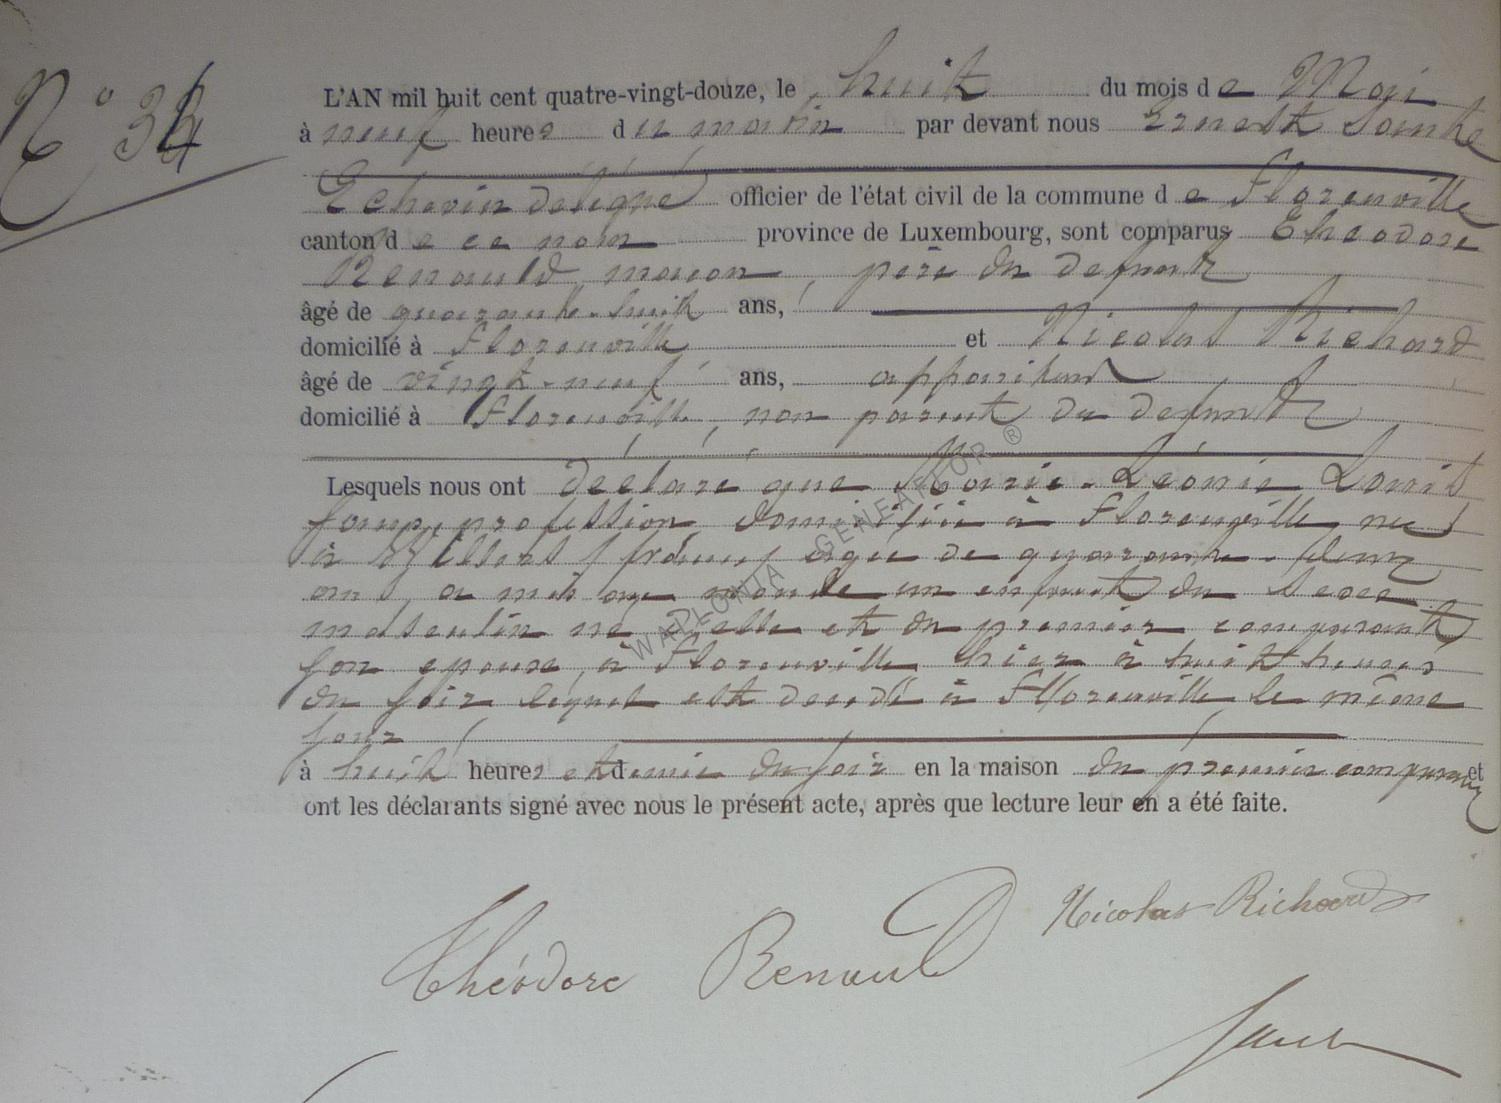 N° 34
L'AN mil huit cent quatre-vingt-douze, le huit du mois de Mai
à neuf heures du matin par devant nous Ernest
Echevin délégué officier de l'état civil de la commune de Florenville
canton de ce nom province de Luxembourg, sont comparus Théodore
Renauld, maçon, père du défunt
âgé de quarante-huit ans,
domicilié à Florenville et Nicolas Richard
âgé de vingt-neuf ans, appariteur
domicilié à Florenville, non parent du défunt
Lesquels nous ont déclaré que Marie-Léonie Louis
sans profession domiciliée à Florenville née
à Villers agée de quarante-deux
ans, a mis au monde un enfant du sexe
masculin né d'elle et du premier comparant
son epoux, à Florenville hier à huit heures
du soir lequel est decedé à Florenville le même
jour
à huit heures et demie du soir en la maison du premier comparant et
ont les déclarants signé avec nous le présent acte, après que lecture leur en a été faite.
Théodore Renauld Nicolas Richard
WALLONIA GENEAFLOR ®